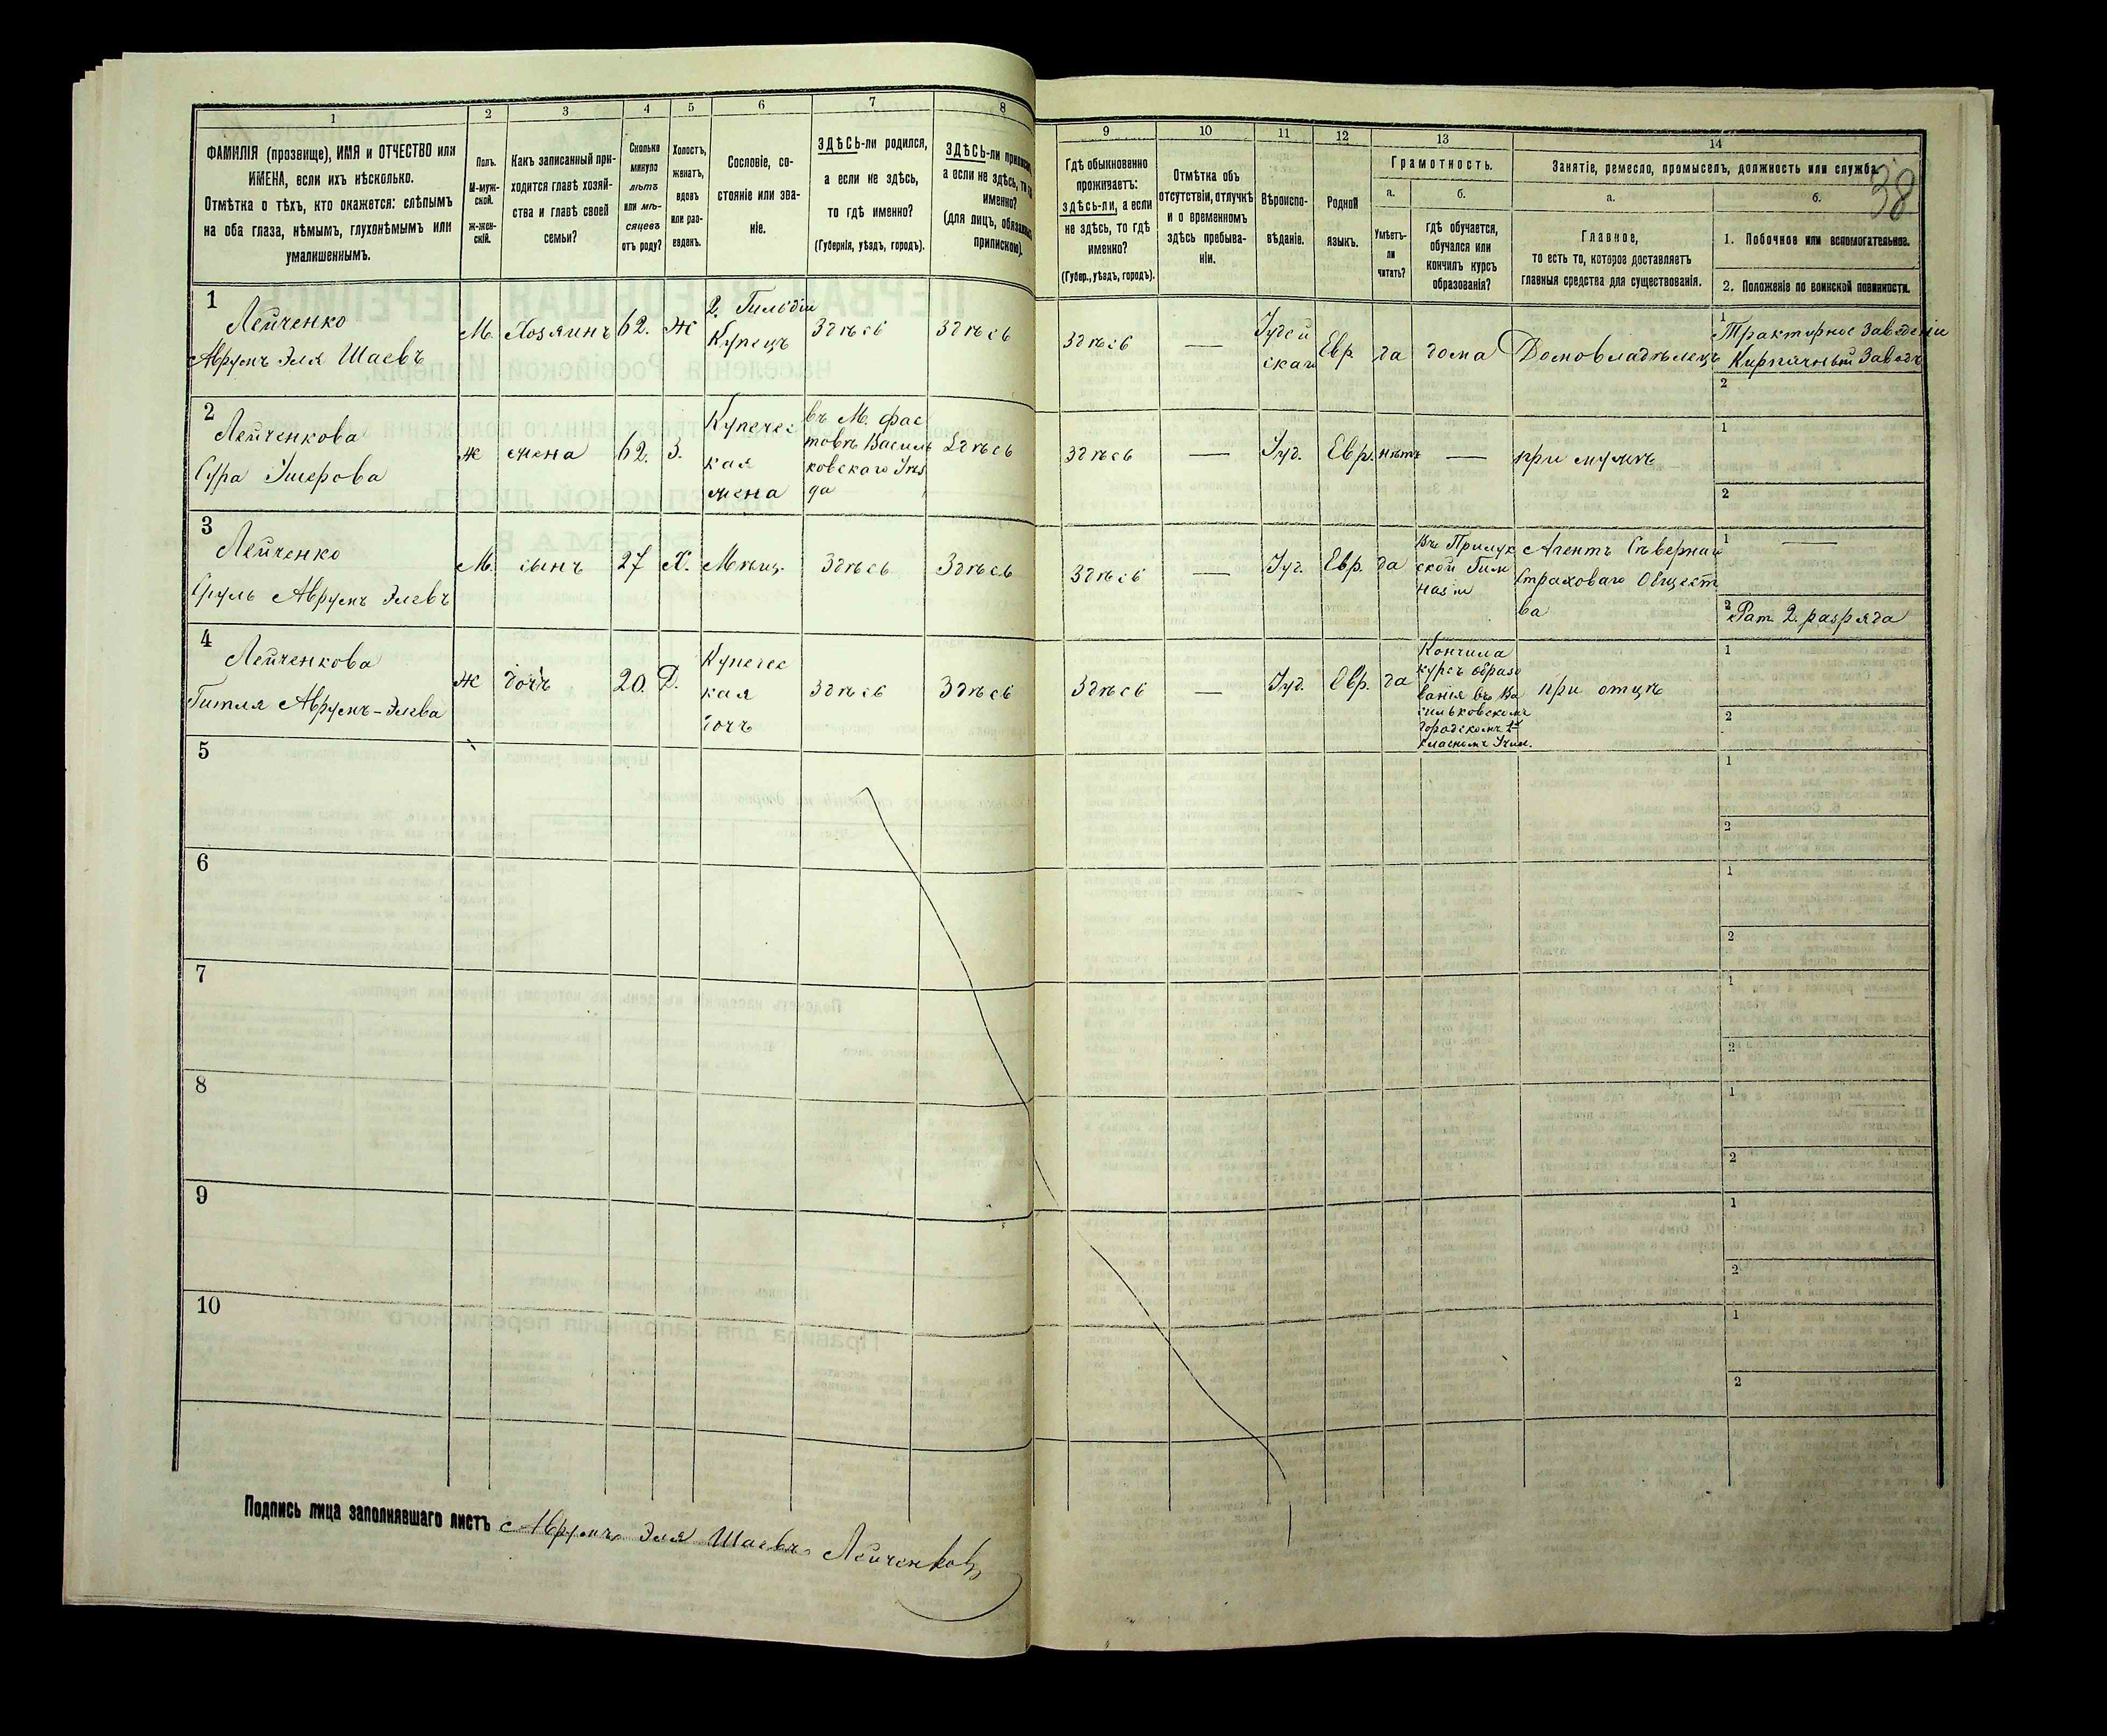 38
1
2
3
4
5
6
7
8
9
10
11
12
13
14
ФАМИЛІЯ (прозвище), ИМЯ и ОТЧЕСТВО или
ИМЕНА, если ихъ нѣсколько.
Отмѣтка о тѣхъ, кто окажется: слѣпымъ
на оба глаза, нѣмымъ, глухонѣмымъ или
умалишеннымъ.
Полъ.
М-муж-
ской.
Ж-жен-
скій.
Какъ записанный при-
ходится главѣ хозяй-
ства и главѣ своей
семьи?
Сколько
минуло
лѣтъ
или мѣ-
сяцевъ
отъ роду?
Холостъ,
женатъ,
вдовъ
или раз-
веденъ.
Сословіе, со-
стояніе или зва-
ніе.
ЗДѢСЬ-ли родился,
а если не здѣсь,
то гдѣ именно?
(Губернія, уѣздъ, городъ).
ЗДѢСЬ-ли
а если не здѣсь, то
именно?
(для лицъ,
припискою).
Гдѣ обыкновенно
проживаетъ:
здѣсь-ли, а если
не здѣсь, то гдѣ
именно?
(Губер., уѣздъ, городъ).
Отмѣтка объ
отсутствіи, отлучкѣ
и о временномъ
здѣсь пребыва-
ніи.
Вѣроиспо-
вѣданіе.
Родной
языкъ.
Грамотность.
а.
Умѣетъ-
ли
читать?
б.
гдѣ обучается,
обучался или
кончилъ курсъ
образованія?
Занятіе, ремесло, промыселъ, должность или служба.
а.
Главное,
то есть то, которое доставляетъ
главныя средства для существованія.
б.
1. Побочное или вспомогательное.
2. Положеніе по воинской повинности.
1
Лейченко
Аврумъ Эля Шаевъ
М.
Хозяинъ
62.
Ж
2. Гильдіи
Купецъ
Здѣсь
Здѣсь
Здѣсь
—
Іудей
скаго
Евр.
да
дома
Домовладѣлецъ
1
Трактирное Заведеніе
Кирпичный Заводъ
2
2
Лейченкова
Сура Ушерова
Ж
жена
62.
З.
Купечес
кая
жена
въ М. Фас
товѣ Василь
ковскаго Уѣз
да
Здѣсь
Здѣсь
—
Іуд.
Евр.
нѣтъ
—
при мужѣ
1
2
3
Лейченко
Сруль Аврумъ Элевъ
М.
сынъ
27
Х.
Мѣщ.
Здѣсь
Здѣсь
Здѣсь
—
Іуд.
Евр.
да
Въ Прилук
ской Гим
назіи
Агентъ Сѣвернаго
Страховаго Общест
ва
1
—
2
Рат. 2. разряда
4
Лейченкова
Гитля Аврумъ-Элева
Ж
дочь
20.
Д.
Купечес
кая
дочь
Здѣсь
Здѣсь
Здѣсь
—
Іуд.
Евр.
да
Кончила
курсъ образо
ванія въ Ва
сильковскомъ
Городскомъ 2х
класномъ Учил.
при отцѣ
1
2
5
1
2
6
1
2
7
1
2
8
1
2
9
1
2
10
1
2
Подпись лица заполнявшаго листъ Аврумъ Эля Шаевъ Лейченковъ